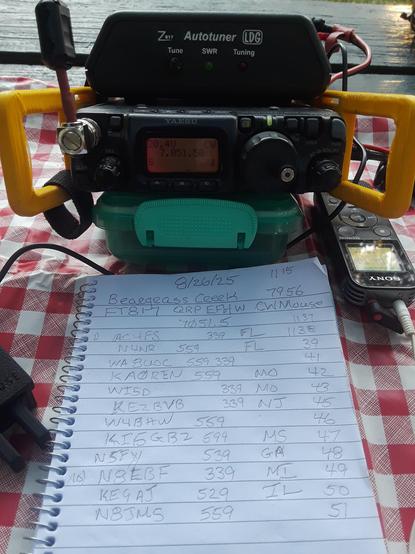 Z817 Autotuner LDG
Tune SWR Tuning
YAESU
7.051.50
SONY
8/26/25 1115
Beargrass Creek 7956
FT817 QRP EFHW CW Mouse
7051.5 1137
339 FL 1138
N4NR 559 FL 39
559 339 41
KA0REN 559 MO 42
WI5D 339 MO 43
KE2BVB 339 NJ 45
W4BHW 559 46
KI6GBZ 599 MS 47
539 GA 48
N8EBF 339 MI 49
KE9AJ 529 IL 50
N8JMS 559 51